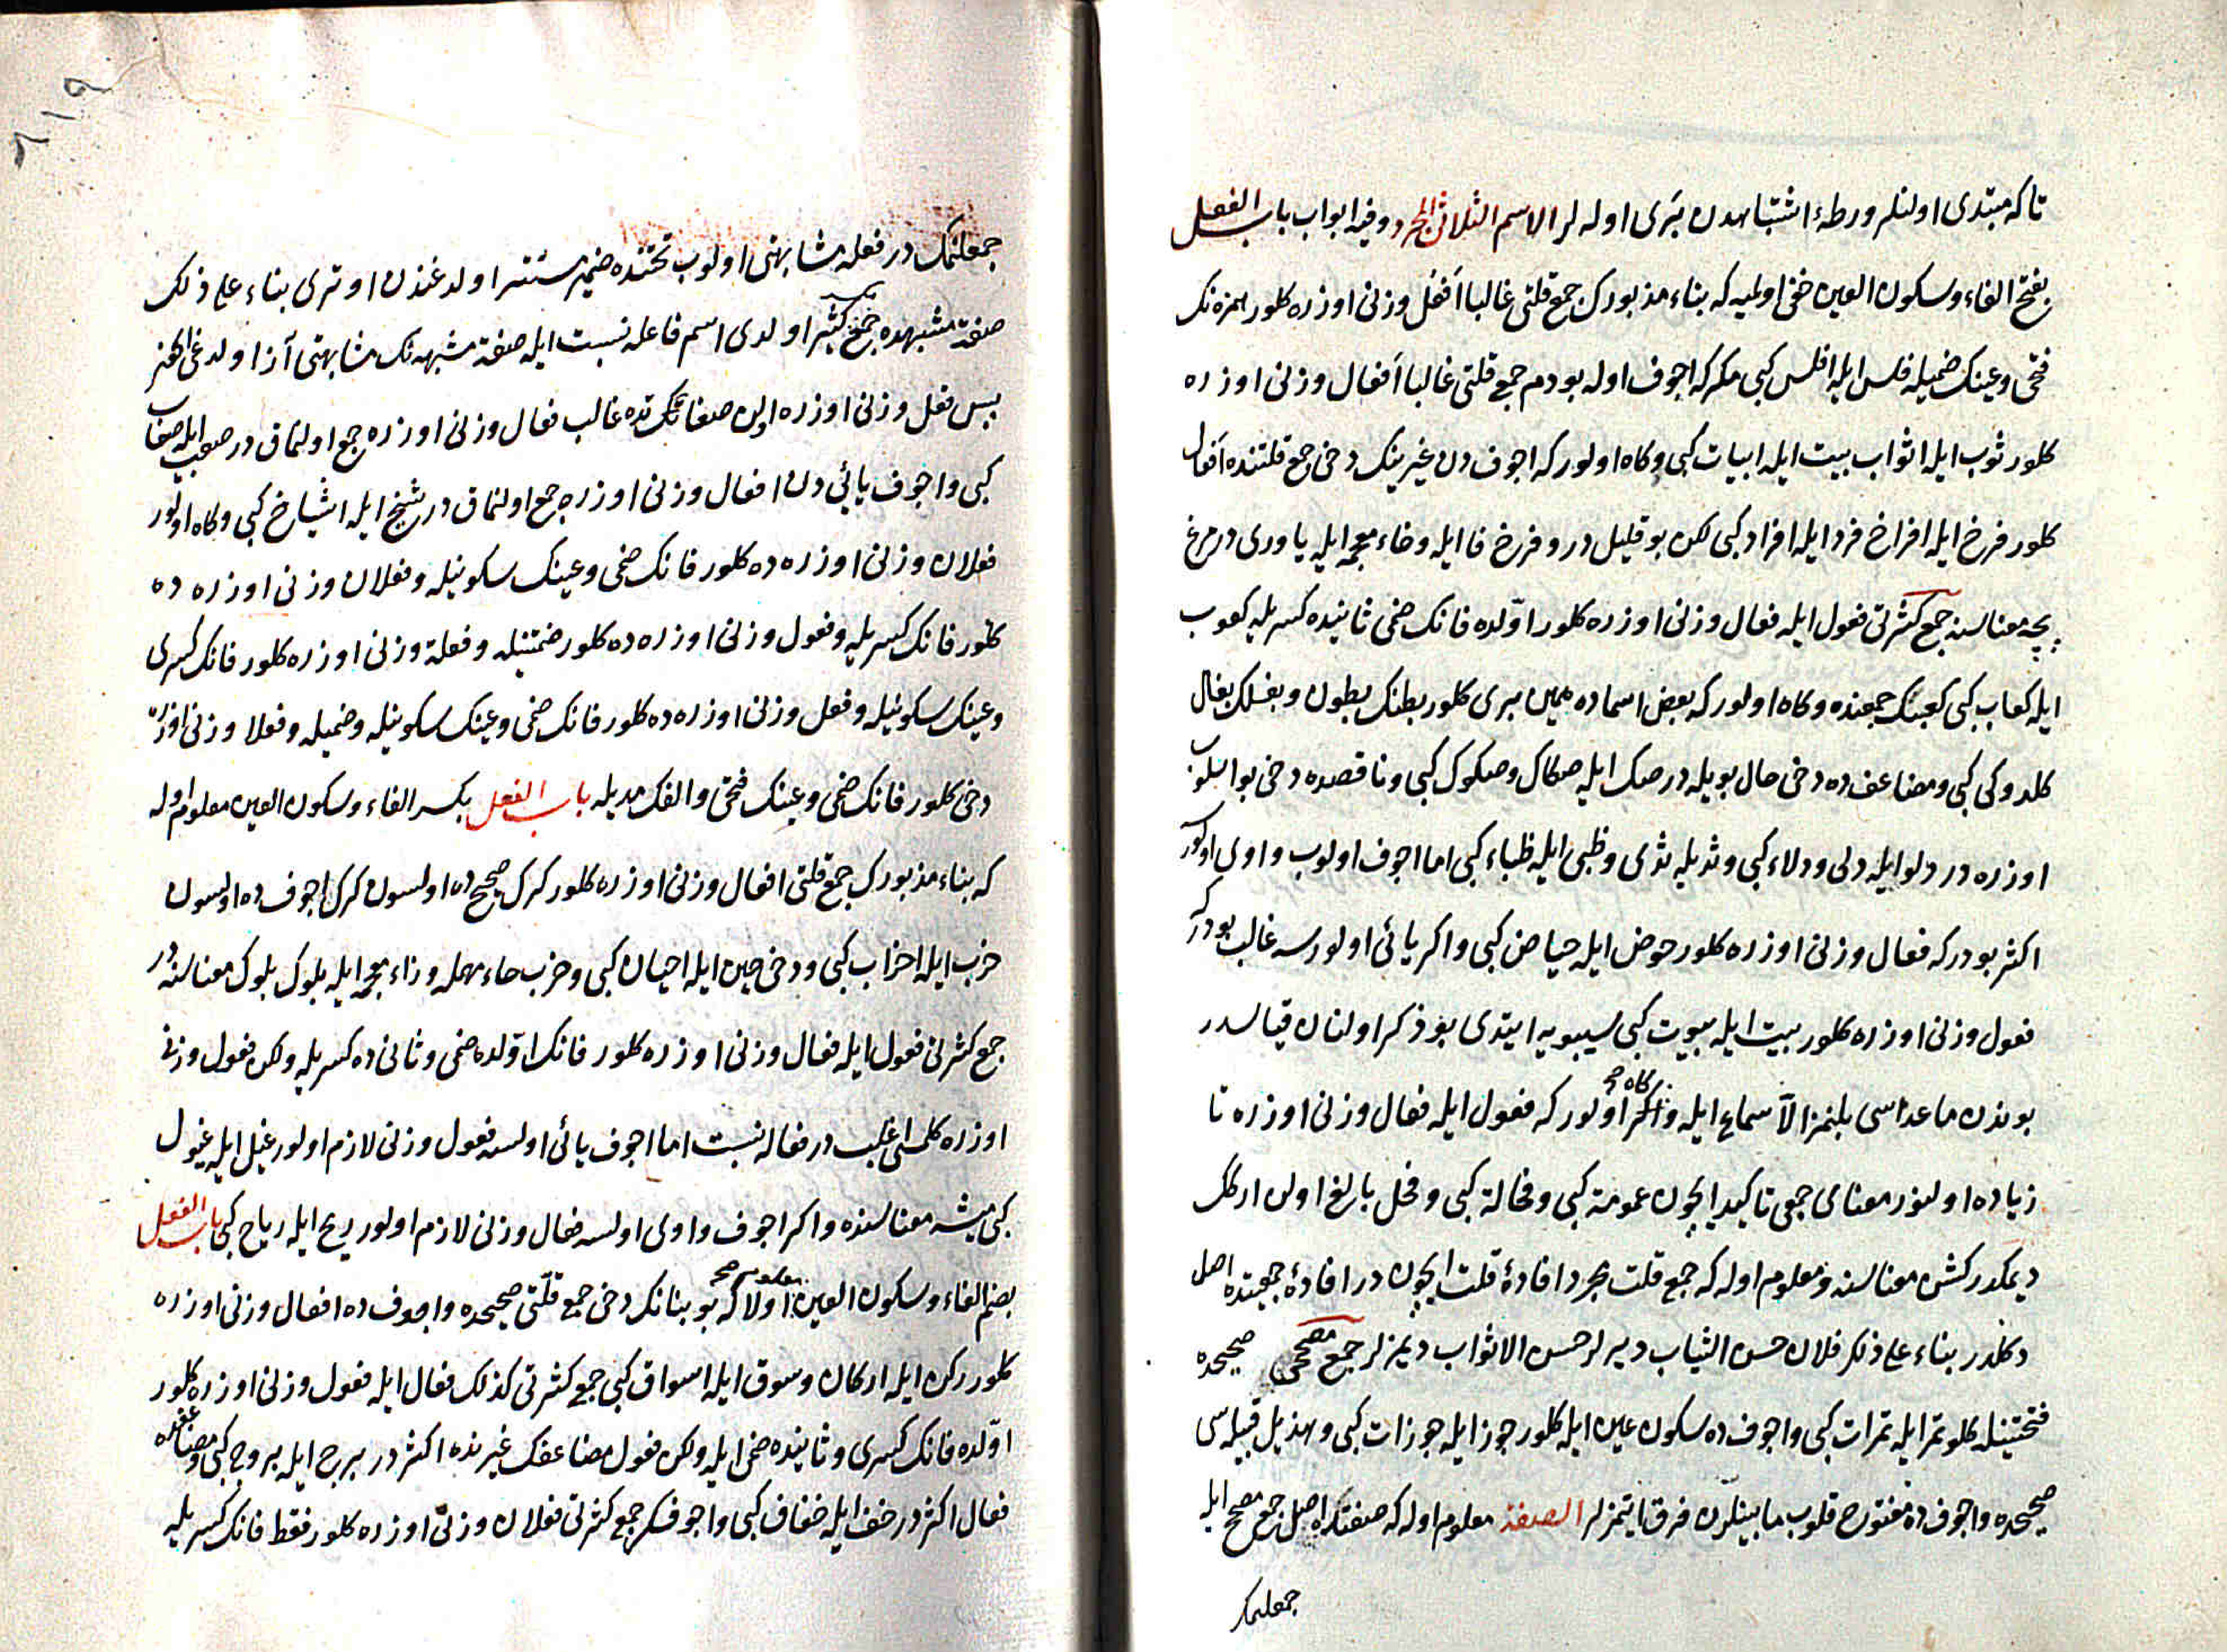 تا كه مبتدى اولنلر ورطهٔ اشتباهدن برى اوله لر الاسم الثلاثى المجرد وفيه ابواب باب الفعل
بفتح الفاء وسكون العين خفى اولميه كه بناء مذبورك جمع قلتى غالبا اَفعُل وزنى اوزره كلور همزه نك
فتحى وعينك ضميله فلس ايله افلس كبى مكر كه اجوف اوله بودم جمع قلتى غالبا اَفعال وزنى اوزره
كلور ثوب ايله اثواب بيت ايله ابيات كبى وكاه اولور كه اجوف دن غيرينك دخى جمع قلتنده اَفعال
كلور فرخ ايله افراخ فرد ايله افراد كبى لكن بو قليل در و فرخ فا ايله وخاء معجمه ايله ياورى در مرغ
بچه معناسنه جمع كثرتى فعول ايله فعال وزنى اوزره كلور اوّلده فانك ضمى ثانيده كسريله كعوب
ايله كعاب كبى كعبنك جمعنده وكاه اولور كه بعض اسماده همين برى كلور بطنك بطون وبغلك بغال
كلدوكى كبى ومضاعف ده دخى حال بويله در صك ايله صكاك وصكوك كبى وناقصده دخى بو اسلوب
اوزره در دلو ايله دلى ودلاء كبى وثديله ثدى وظبى ايله ظباء كبى اما اجوف اولوب واوى اولور
اكثر بودر كه فعال وزنى اوزره كلور حوض ايله حياض كبى واكر يائى اولورسه غالب بودر كه
فعول وزنى اوزره كلور بيت ايله بيوت كبى سيبويه ايتدى بو ذكر اولنان قياسدر
بوندن ماعداسى بلنمز الّا سماع ايله وكاه اولور كه فعول ايله فعال وزنى اوزره تا
زياده اولنور معناى جمعى تاكيد ايچون عمومة كبى وفحالة كبى وفحل بالغ اولن ارككـ
ديمكدر كشن معناسنه ومعلوم اوله كه جمع قلت مجرد افادهٔ قلت ايچون در افادهٔ جمعيتده اصل
دكلدر بناء على ذلك فلان حسن الثياب ديرلر حسن الاثواب ديمزلر جمع مصححى صحيحده
فتحتينله كلور تمر ايله تمرات كبى واجوف ده سكون عين ايله كلور جوز ايله جوزات كبى وهذيل قبيله سى
صحيحده واجوف ده مفتوح قلوب مابينلرن فرق ايتمزلر الصفة معلوم اوله كه صفتده اصل جمع مصحح ايله
جمعلنمك
جمعلنمك در فعله مشابهتى اولوب تحتنده ضمير مستتر اولدغندن اوترى بناء على ذلك
صفة مشبهه ده جمع تكسير كثير اولدى اسم فاعله نسبت ايله صفة مشبهه نك مشابهتى آز اولدغى ايچون
پس فعل وزنى اوزره اولن صفاتك عندنده غالب فعال وزنى اوزره جمع اولنماق در صعب ايله صعاب
كبى واجوف يائى دن افعال وزنى اوزره جمع اولنماق در شيخ ايله اشياخ كبى وكاه اولور
فعلان وزنى اوزره ده كلور فانك ضمى وعينك سكونيله وفعلان وزنى اوزره ده
كلور فانك كسريله وفعول وزنى اوزره ده كلور ضمتينله وفعلة وزنى اوزره كلور فانك كسرى
وعينك سكونيله وفعل وزنى اوزره ده كلور فانك ضمى وعينك سكونيله وضميله وفعلا وزنى اوزره
دخى كلور فانك ضمى وعينك فتحى والفك مديله باب الفعل بكسر الفاء وسكون العين معلوم اوله
كه بناء مذبورك جمع قلتى افعال وزنى اوزره كلور كرك صحيح ده اولسون كرك اجوف ده اولسون
حزب ايله احزاب كبى ودخى حين ايله احيان كبى وحزب حاء مهمله وزاء معجمه ايله بلوك بلوك معناسنه در
جمع كثرتى فعول ايله فعال وزنى اوزره كلور فانك اوّلده ضمى وثانى ده كسريله ولكن فعول وزنى
اوزره كلمسى اغلب در فعاله نسبت اما اجوف يائى اولسه فعول وزنى لازم اولور غيل ايله غيول
كبى ميشه معناسنده واكر اجوف واوى اولسه فعال وزنى لازم اولور ريح ايله رياح كبى باب الفعل
بضم الفاء وسكون العين معلوم اولا كه بو بنانك دخى جمع قلّتى صحيحده واجوف ده افعال وزنى اوزره
كلور ركن ايله اركان وسوق ايله اسواق كبى جمع كثرتى كذلك فعال ايله فعول وزنى اوزره كلور
اوّلده فانك كسرى وثانيده ضمى ايله ولكن فعول مضاعفك غيرنده اكثر در برج ايله بروج كبى ومضاعفده
فعال اكثر در خف ايله خفاف كبى واجوفك جمع كثرتى فعلان وزنى اوزره كلور فقط فانك كسريله